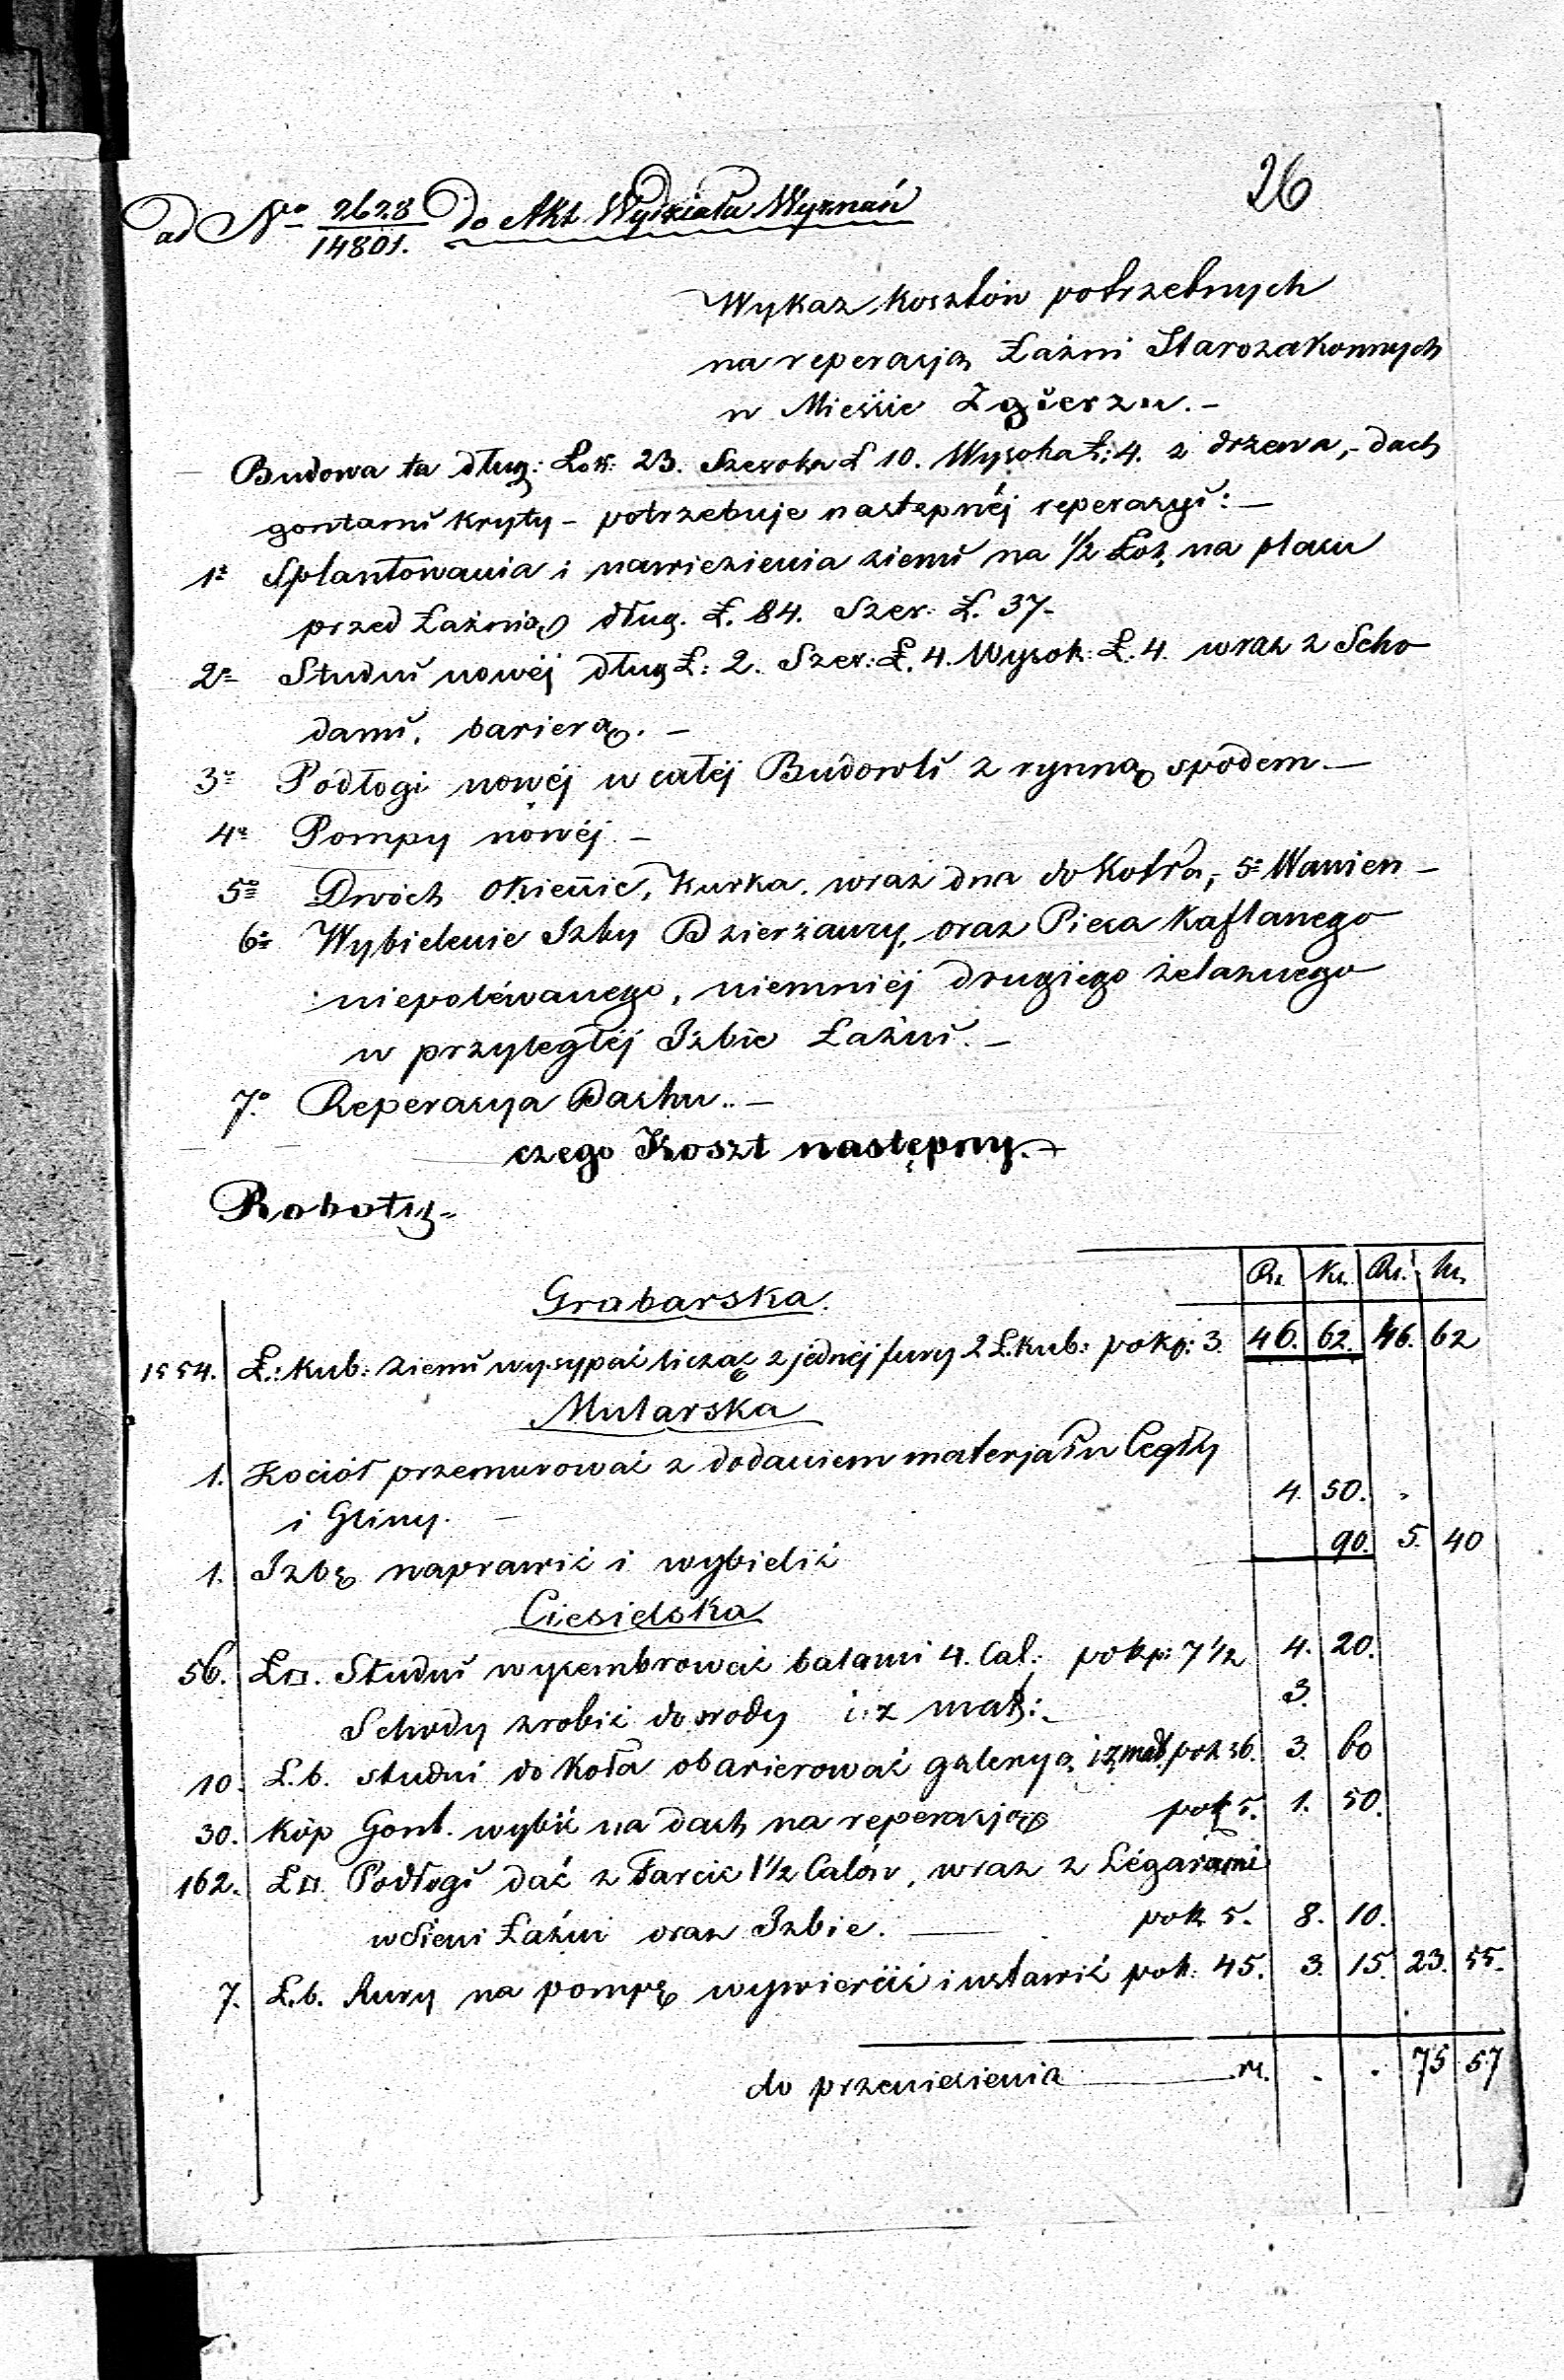 26
ad No 2628/14801. Do Akt Wydziału Wyznań
Wykaz kosztów potrzebnych
na reperacją Łaźni Starozakonnych
w Mieście Zgierzu. –
Budowa ta dług: Łok: 23. Szeroka Ł 10. Wysoka Ł: 4. z drzewa, – dach
gontami kryty – potrzebuje nastepnéj reperacyi: –
1o Splantowania i nawiezienia ziemi na 1/2 Łoż, na placu
przed Łaźnią dług. Ł. 84. Szer: Ł. 37 –
2o Studni nowéj dług Ł: 2. Szer: Ł. 4. Wysok: Ł: 4. wraz z Scho
dami, barierą. –
3o Podłogi nowéj w całéj Budowli z rynną spodem. –
4o Pompy nowéj. –
5o Dwóch okiennic, Kurka, wraz dna do Kotła, 5o Wanien –
6o Wybielenie Izby Dzierżawcy, oraz Pieca Kaflanego
niepoléwanego, niemniéj drugiego żelaznego
w przyległéj Izbie Łaźni. –
7o Reperacya Dachu. –
czego Koszt następny. –
Roboty –
Rs. Kr. Rs. kr.
Grabarska.
1554. Ł: kub: ziemi wysypać licząc z jednéj fury 2 Ł. kub: po kp: 3. 46. 62. 46. 62
Mularska
1. Kocioł przemurować z dodaniem materjału Cegły
i Gliny. – 4. 50.
1. Izbę naprawić i wybielić 90. 5. 40
Ciesielska
56. Ł□. Studni wycembrować balami 4. Cal: po kp: 7 1/2 4. 20.
Schody zrobić do wody i: z mat: 3.
10. Ł. b. studni do koła obarierować galeryą, i z mat. po k 36. 3. 60
30. Kóp Gont. wybić na dach na reperacją po k 5. 1. 50.
162. Ł□. Podłogi dać z Tarcic 1 1/2 Calów, wraz z Légarami
w Sieni Łaźni oraz Izbie. – po k 5. 8. 10.
7. Ł. b. Rury na pompę wywiercić i wstawić po k: 45. 3. 15. 23. 55.
do przeniesienia rs. . . 75 57